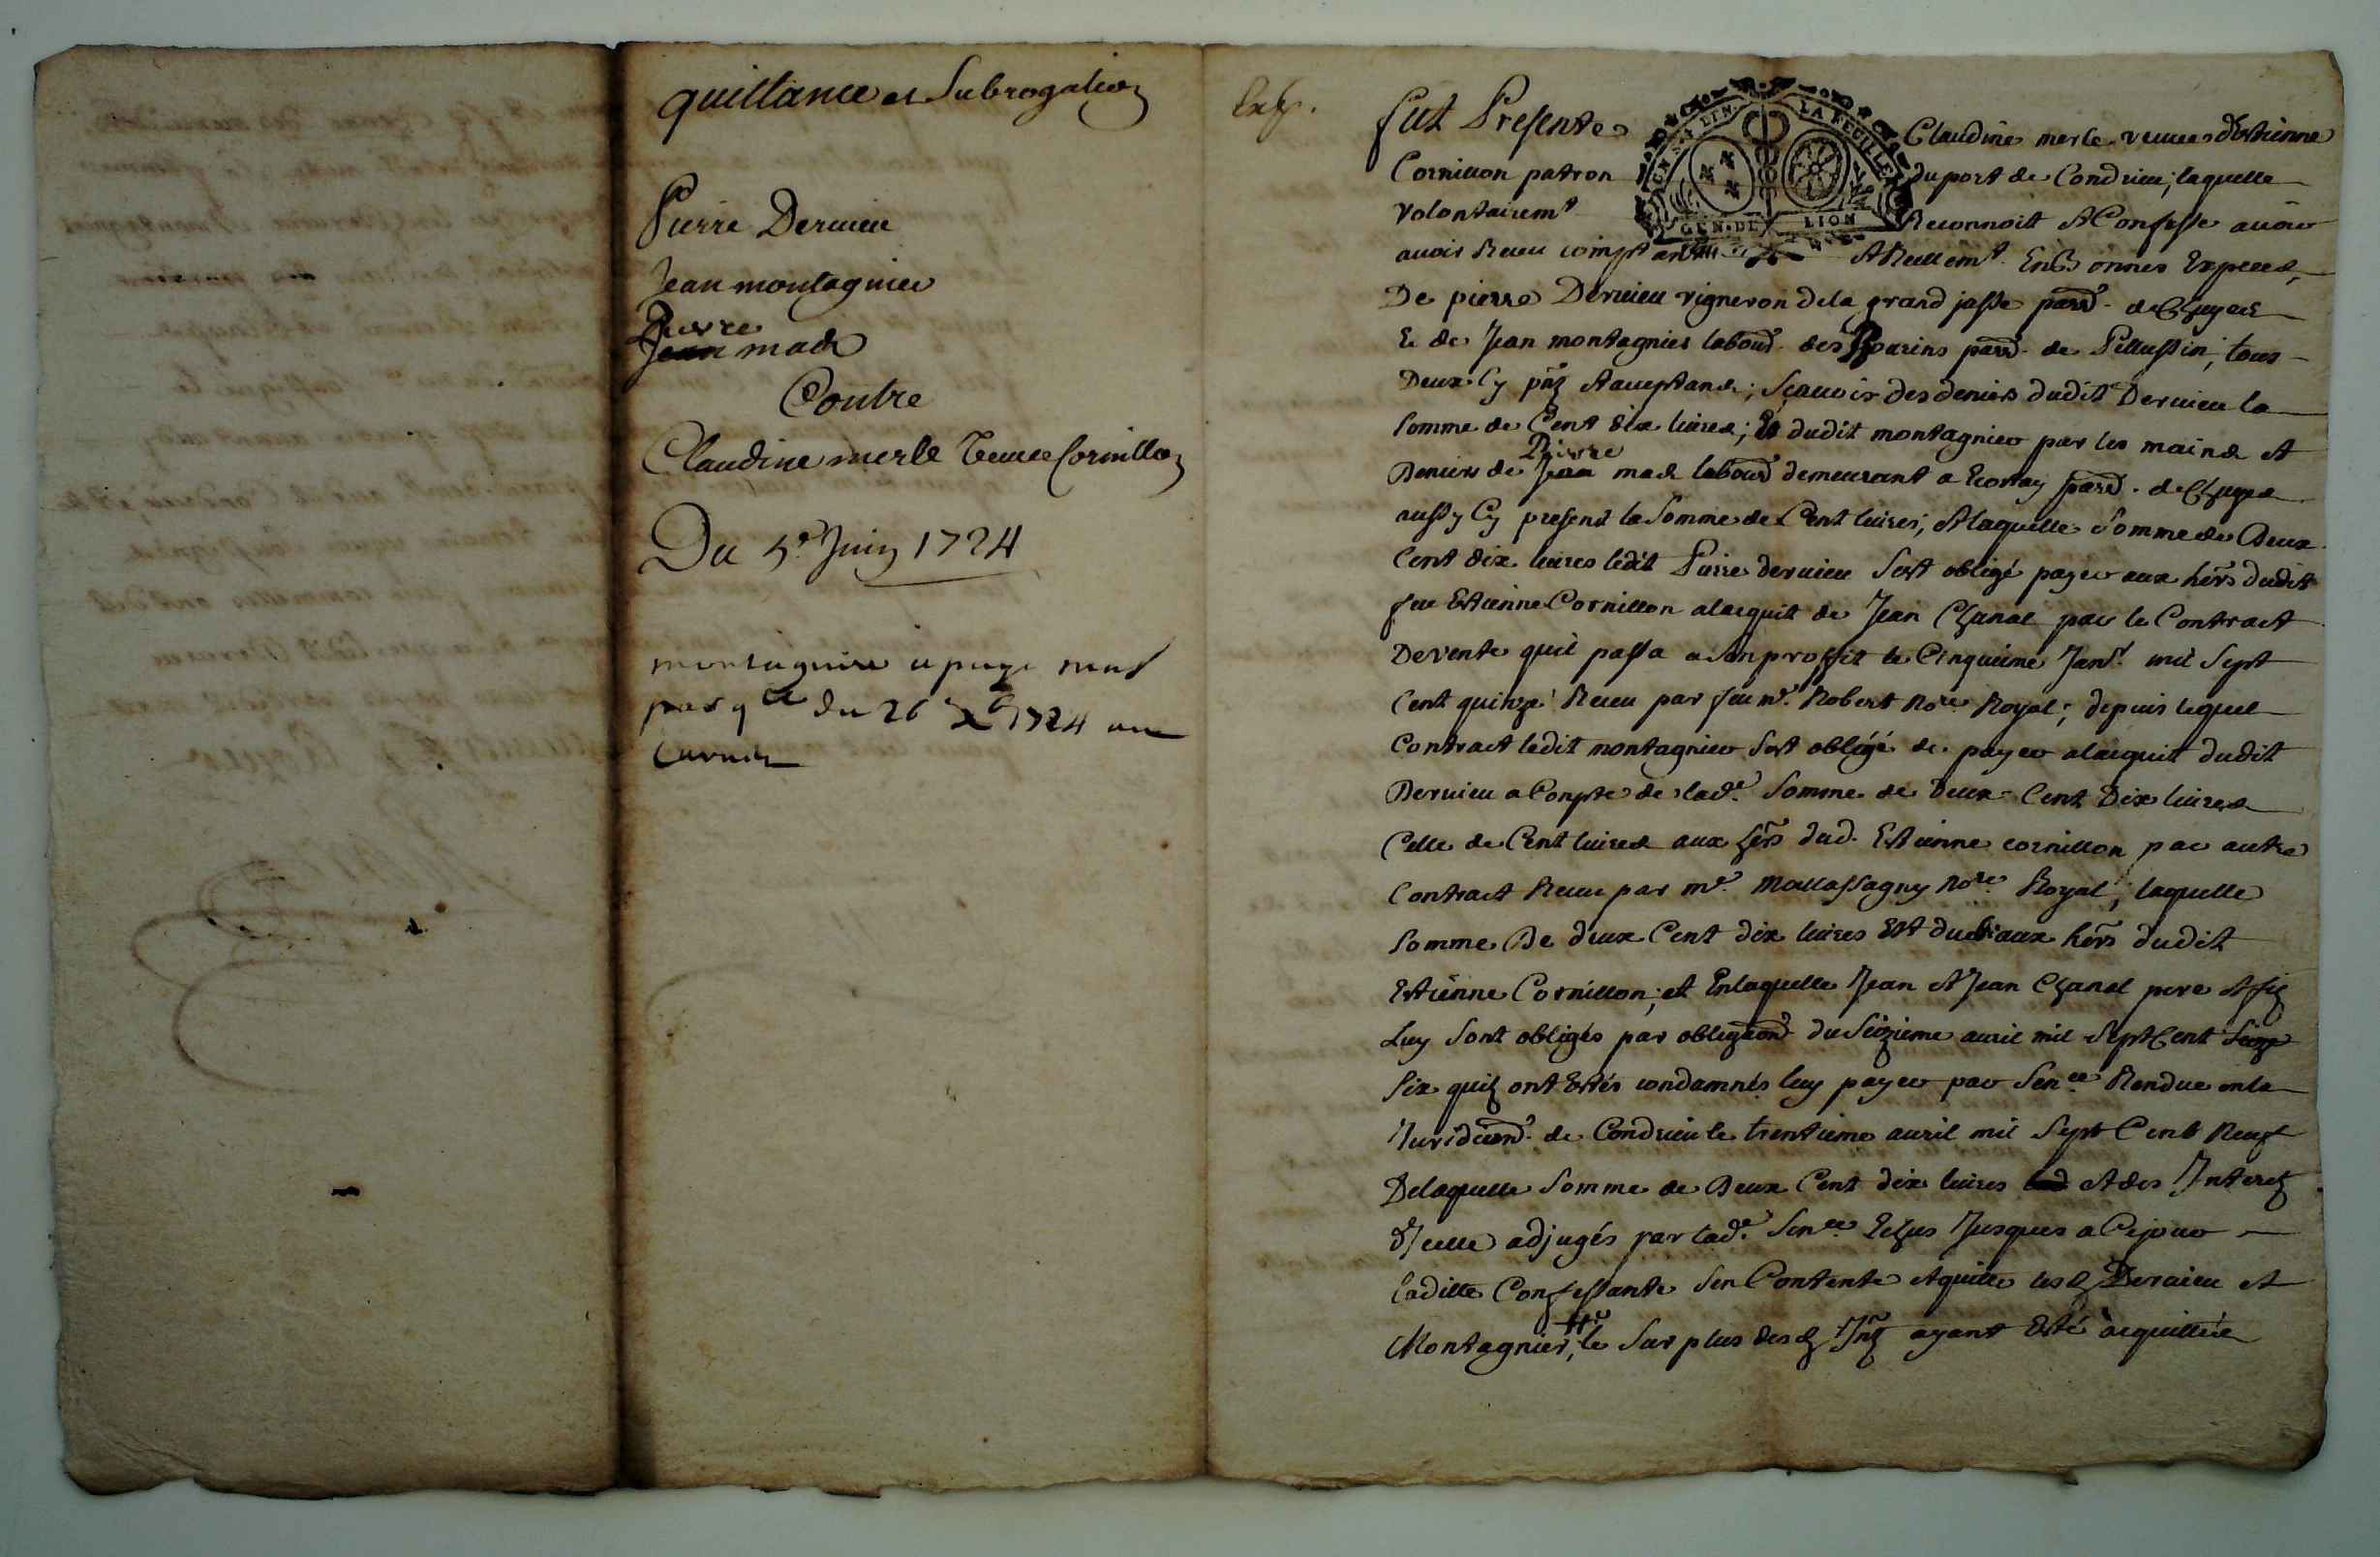 quittance et Subrogation
Pierre Dervieu
Jean montagnier
Pierre
Jean mads
Contre
Claudine merle Veuve Cornillon
Du 5e. Juin 1724
montagnier a paye
par qce du 26 Xb 1724
Exp.
GEN. DE LION
LA FEUILLE
fut Presente Claudine merle veuve d'Estienne
Cornillon patron du port de Condrieu; laquelle
volontairemt Reconnoit et Confesse avoir
avoir Receu comptant et Reellemt. En Bonnes Especes,
De pierre Dervieu vigneron de la grand jasse parr. de Chuyes
& de Jean montagnier labour. des parr. de Pellussin; tous
Deux Cy pnt et acceptans; Sçavoir des deniers dudit Dervieu la
Somme de Cent dix livres; Et dudit montagnier par les mains et
Pierre
Deniers de Jean mads labour demeurant a parr. de Chuyes
aussy Cy present la Somme de Cent livres; et laquelle Somme de Deux
Cent dix livres ledit Pierre dervieu Sest obligé payer aux hers dudit
feu Estienne Cornillon alacquit de Jean Chanal par le Contract
De vente quil passa a son proffit le Cinquieme Janv. mil Sept
Cent quinze Receu par feu me. Robert Nore Royal; depuis lequel
Contract ledit montagnier Sest obligé de payer alacquit dudit
Dervieu a Conpte de lade. Somme de deux Cent Dix livres
Celle de Cent livres aux hers dud. Estienne cornillon par autre
Contract Receu par me. Mallassagny Nore Royal; laquelle
Somme De deux Cent dix livres Est due aux hers dudit
Estienne Cornillon; et En laquelle Jean et Jean Chanal pere et fiz
Luy Sont obligés par obligaon du Seizieme avril mil Sept Cent
Six quiz ont Estés condamnés luy payer par Sence Rendue en la
Juridicon. de Condrieu le trentieme avril mil Sept Cent Neuf
De laquelle Somme de Deux Cent dix livres et des Interetz
d'Jcelle adjugés par lade. Sence. Echus Jusques a Cejour
Laditte Confessante Sen Contente et quitte lesd Dervieu et
Montagnier, le Surplus desd Intz ayant Esté acquittés